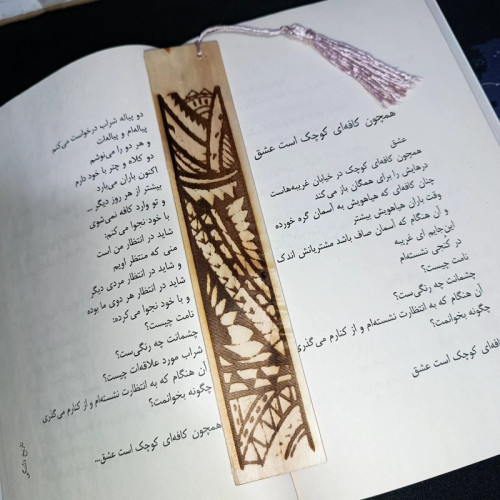 همچون کافه‌ای کوچک است عشق
عشق
همچون کافه‌ای کوچک در خیابان غریبه‌هاست
درهایش را برای همگان باز می‌کند
چنان کافه‌ای که هیاهویش به آسمان گره خورده
وقت باران هیاهویش بیشتر
و آن هنگام که آسمان صاف باشد مشتریانش اندک
این‌جایم ای غریبه
در کنجی نشسته‌ام
نامت چیست؟
چشمانت چه رنگی‌ست؟
آن هنگام که به انتظارت نشسته‌ام و از کنارم می‌گذری
چگونه بخوانمت؟
کافه‌ای کوچک است عشق
دو پیاله شراب درخواست می‌کنم
پیاله‌ام و پیاله‌ات
و هر دو را می‌نوشم
دو کلاه و چتر با خود دارم
اکنون باران می‌بارد
بیشتر از هر روز دیگر ...
و تو وارد کافه نمی‌شوی
با خود نجوا می‌کنم:
شاید در انتظار من است
منی که منتظر اویم
و شاید در انتظار مردی دیگر
شاید در انتظار هر دوی ما بوده
و با خود نجوا می‌کرده:
نامت چیست؟
چشمانت چه رنگی‌ست؟
شراب مورد علاقه‌ات چیست؟
آن هنگام که به انتظارت نشسته‌ام و از کنارم می‌گذری
چگونه بخوانمت؟
همچون کافه‌ای کوچک است عشق...